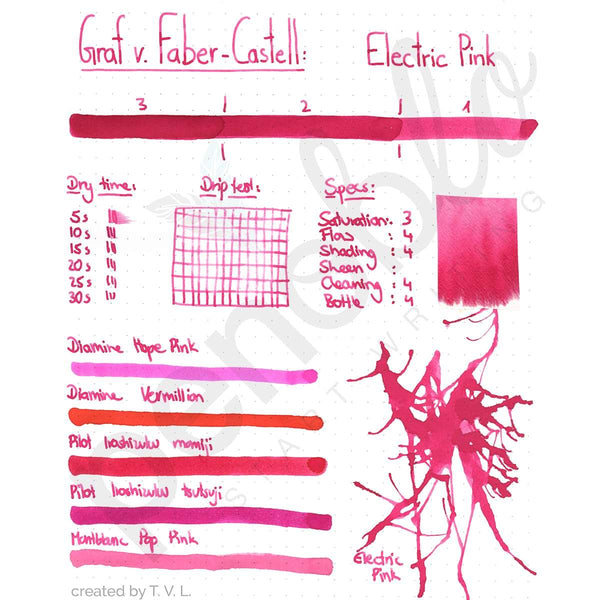 Graf v. Faber-Castell:
Electric Pink
3 2 1
Dry time:
5s
10s
15s
20s
25s
30s
Drip test:
Specs:
Saturation: 3
Flow : 4
Shading : 4
Sheen :
Cleaning : 4
Bottle : 4
Diamine Hope Pink
Diamine Vermillion
Pilot Iroshizuku momiji
Pilot Iroshizuku tsutsuji
Montblanc Pop Pink
Electric
Pink
created by T. V. L.
penoblo
SMART WRITING